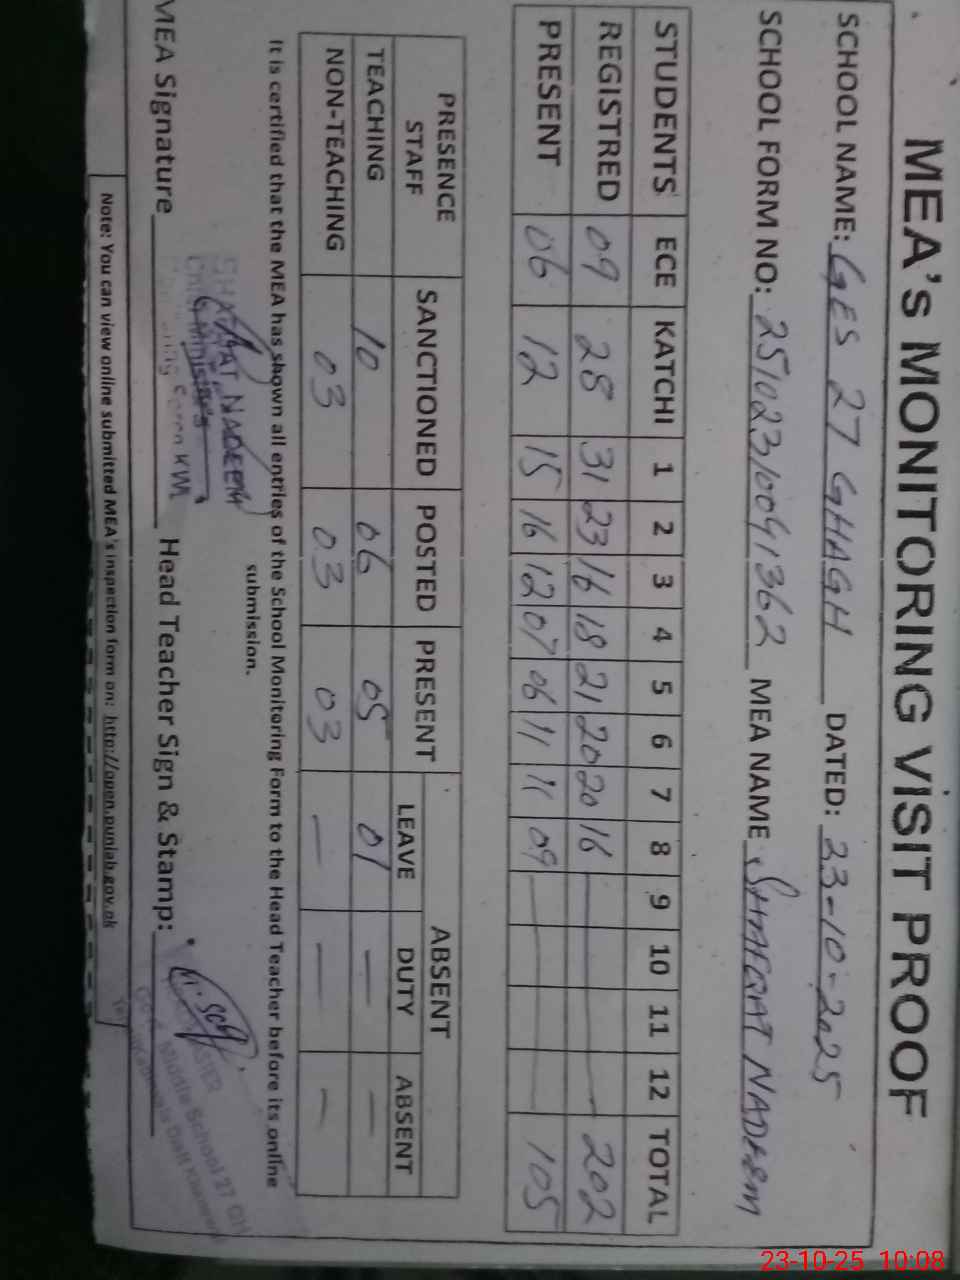 MEA's MONITORING VISIT PROOF
SCHOOL NAME: GES 27 GHAGH DATED: 23-10-2025
SCHOOL FORM NO: 251023/0091362 MEA NAME SHAFQAT NADEEM
STUDENTS ECE KATCHI 1 2 3 4 5 6 7 8 9 10 11 12 TOTAL
REGISTRED 09 28 31 23 16 18 21 20 20 16 202
PRESENT 06 12 15 16 12 07 06 11 11 09 105
PRESENCE STAFF SANCTIONED POSTED PRESENT ABSENT
LEAVE DUTY ABSENT
TEACHING 10 06 05 01 — —
NON-TEACHING 03 03 03 — — —
It is certified that the MEA has shown all entries of the School Monitoring Form to the Head Teacher before its online
submission.
SHAFQAT NADEEM
Chief Minister's
KWL
MEA Signature Head Teacher Sign & Stamp:
Middle School 27 GH
Note: You can view online submitted MEA's inspection form on: http://open.punjab.gov.pk
23-10-25 10:08